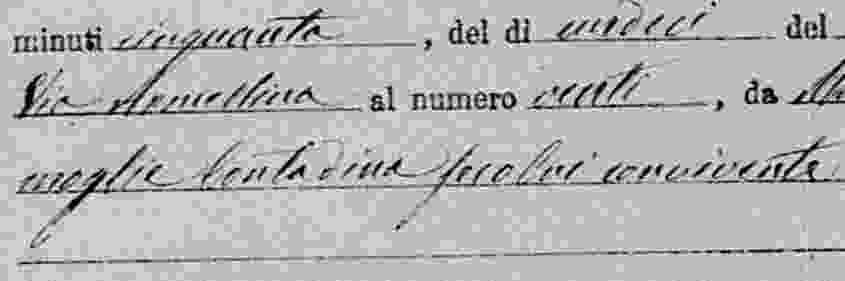 minuti cinquanta, del dì undeci del
Via al numero venti, da
moglie Contadina seco lui convivente